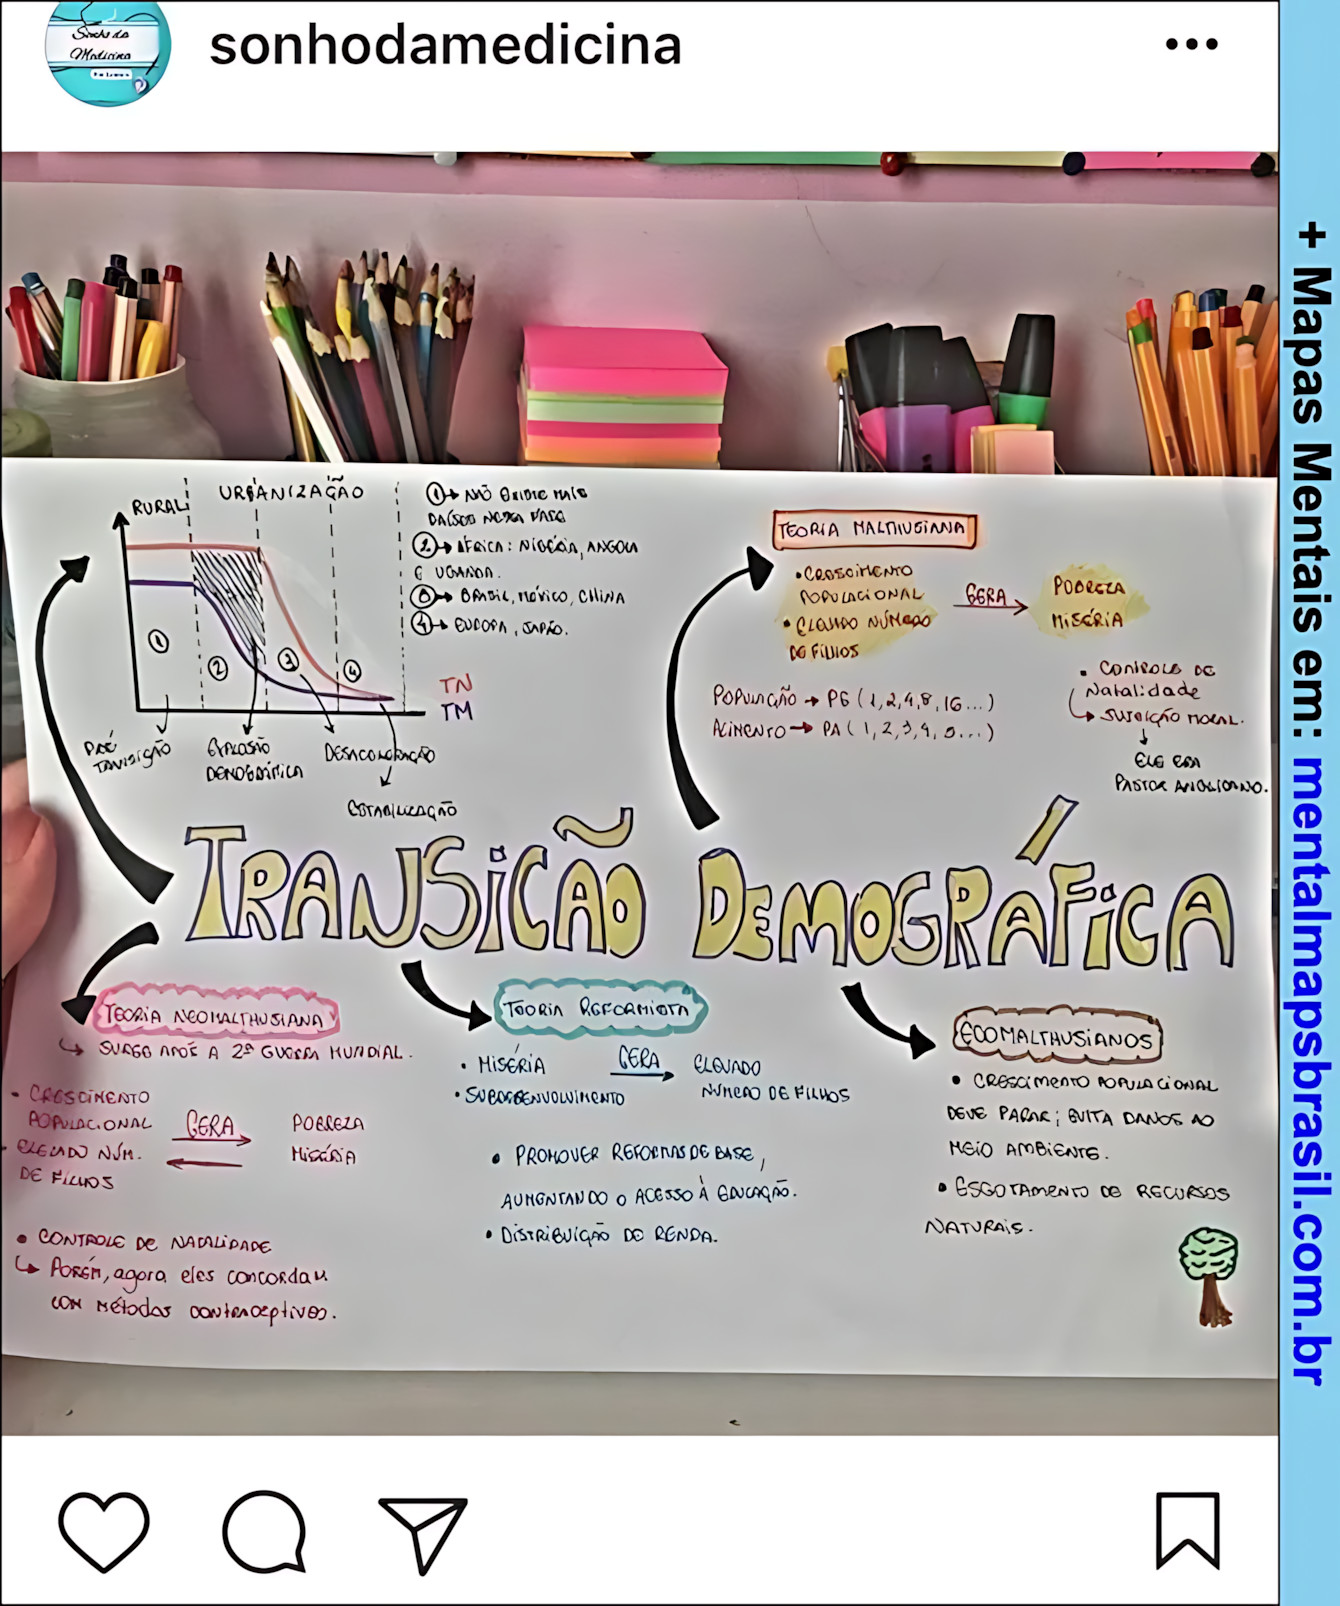 Sonho da
Medicina
sonhodamedicina
RURAL
URBANIZAÇÃO
① → NÃO EXISTE MAIS
PAÍSES NESSA FASE
② → ÁFRICA: NIGÉRIA, ANGOLA
E UGANDA.
③ → BRASIL, MÉXICO, CHINA
④ → EUROPA, JAPÃO.
① ② ③ ④
TN
TM
PRÉ
TRANSIÇÃO
EXPLOSÃO
DEMOGRÁFICA
DESACELERAÇÃO
ESTABILIZAÇÃO
TEORIA MALTHUSIANA
• CRESCIMENTO
POPULACIONAL
• ELEVADO NÚMERO
DE FILHOS
GERA
POBREZA
MISÉRIA
POPULAÇÃO → PG (1,2,4,8,16...)
ALIMENTO → PA (1,2,3,4,5...)
• CONTROLE DE
Natalidade
↳ SUJEIÇÃO MORAL.
ELE ERA
PASTOR ANGLICANO.
TRANSIÇÃO DEMOGRÁFICA
TEORIA NEOMALTHUSIANA
↳ SURGE APÓS A 2ª GUERRA MUNDIAL.
• CRESCIMENTO
POPULACIONAL
• ELEVADO NÚM.
DE FILHOS
GERA
POBREZA
MISÉRIA
• CONTROLE DE NATALIDADE
↳ PORÉM, agora eles concordam
com métodos contraceptivos.
TEORIA REFORMISTA
• MISÉRIA
• SUBDESENVOLVIMENTO
GERA
ELEVADO
NÚMERO DE FILHOS
• PROMOVER REFORMAS DE BASE,
AUMENTANDO O ACESSO À EDUCAÇÃO.
• DISTRIBUIÇÃO DE RENDA.
ECOMALTHUSIANOS
• CRESCIMENTO POPULACIONAL
DEVE PARAR; EVITA DANOS AO
MEIO AMBIENTE.
• ESGOTAMENTO DE RECURSOS
NATURAIS.
+ Mapas Mentais em: mentalmapsbrasil.com.br